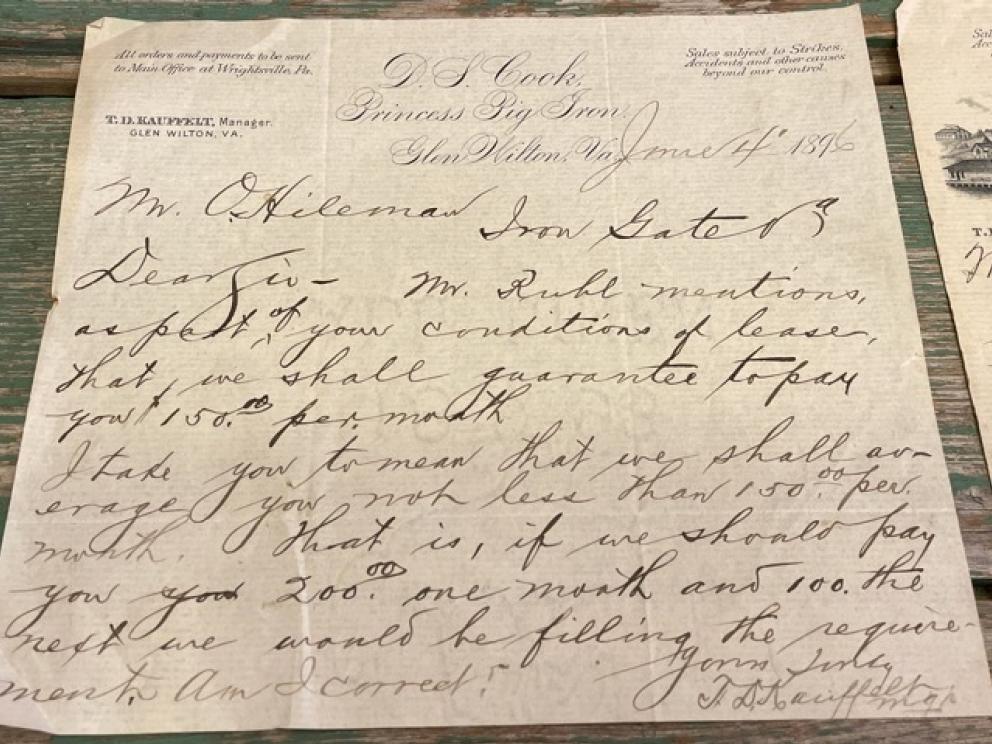 All orders and payments to be sent
to Main Office at Wrightsville, Pa.
T. D. KAUFFELT, Manager.
GLEN WILTON, VA.
D. S. Cook,
Princess Pig Iron.
Glen Wilton, Va. June 4" 1896
Sales subject to Strikes,
Accidents and other causes
beyond our control.
Mr. O. Hileman
Iron Gate Va
Dear Sir - Mr. Ruhl mentions,
as part, of your conditions of lease,
that, we shall guarantee to pay
you $150.00 per. month
I take you to mean that we shall av-
erage you not less than 150.00 per.
month. That is, if we should pay
you you 200.00 one month and 100. the
next we would be filling the require-
ment. Am I correct?
Yours Truly
T. D. Kauffelt Mgr
Sal
Acc
T.
M